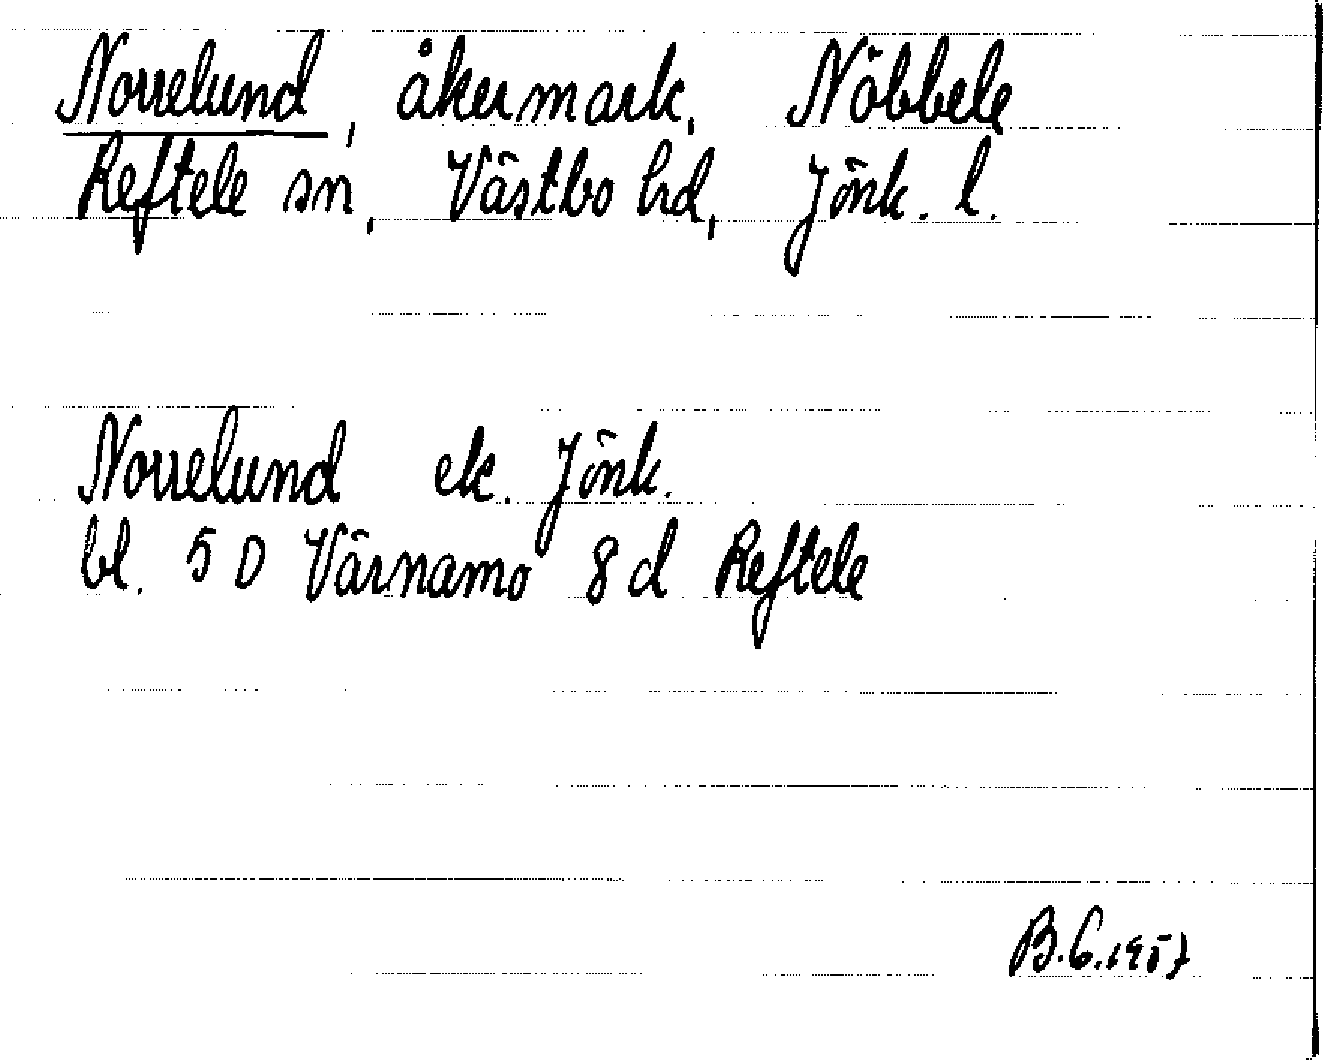 Norrelund, åkermark, Nöbbele
Reftele sn, Västbo hd, Jönk. l.
Norrelund ek. Jönk.
bl. 5 D Värnamo 8 d Reftele
B.G. 1957